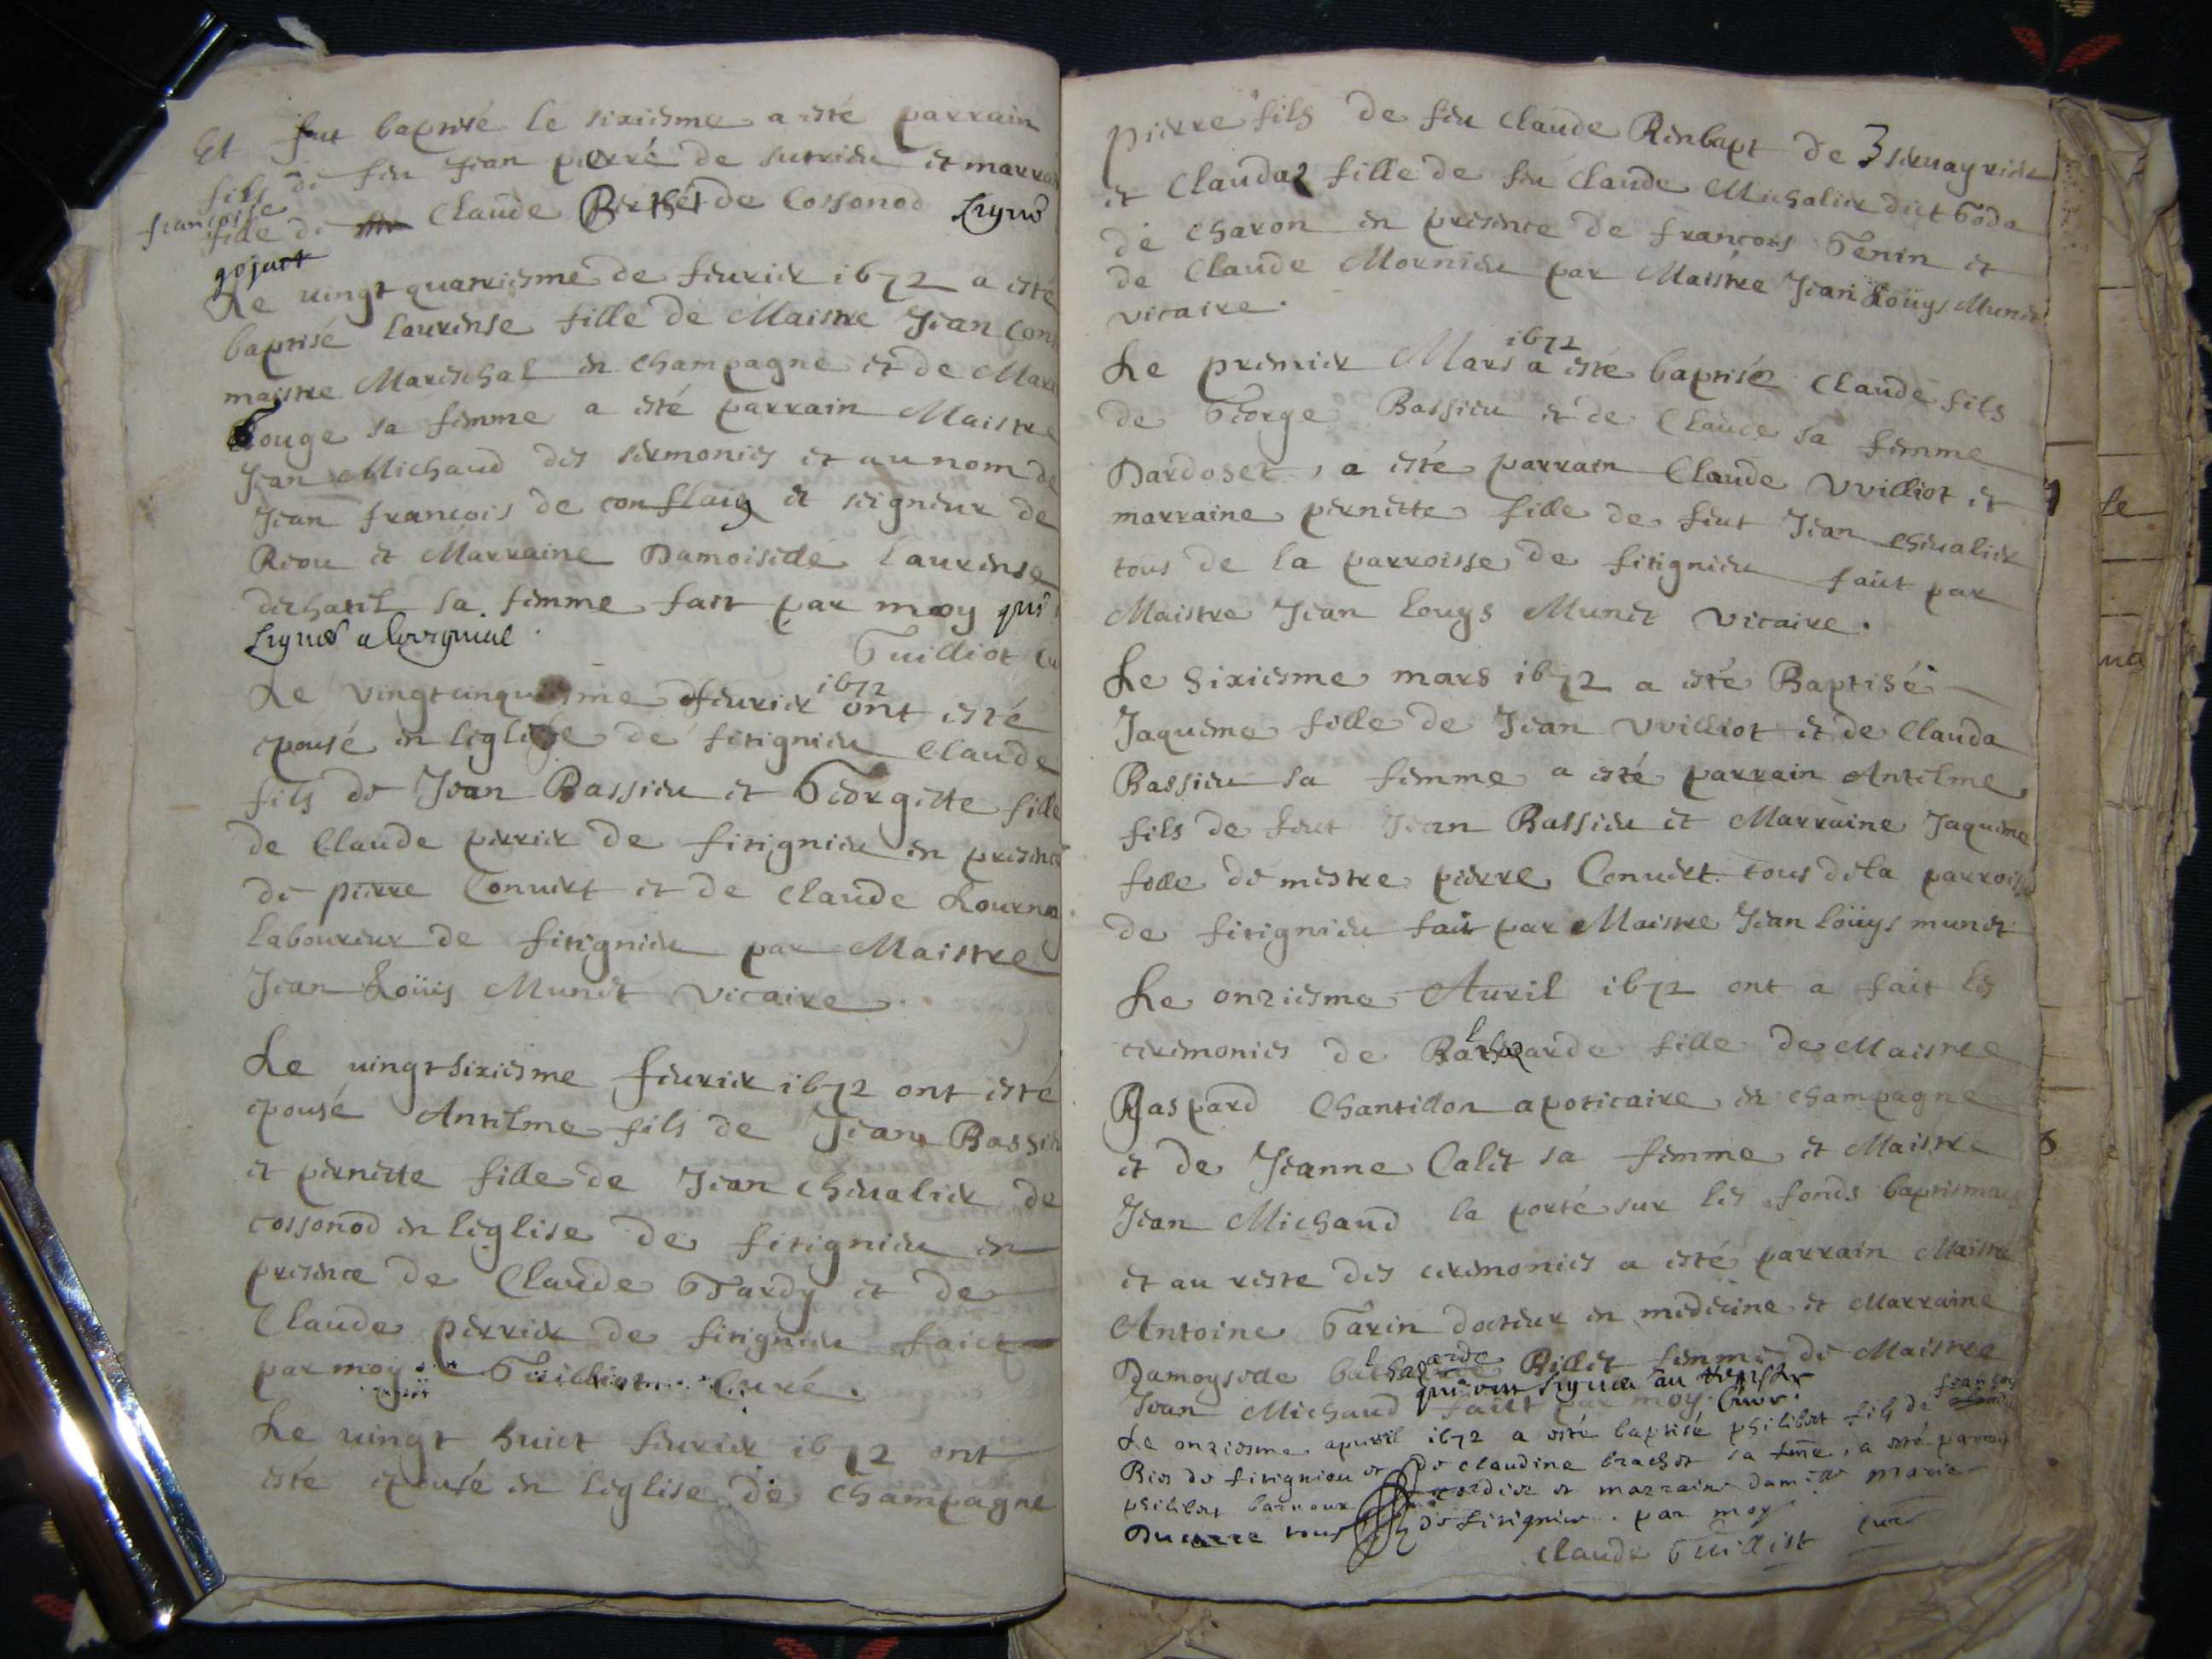 Et fut baptisé le sixiesme a esté parrain
fils de feu Jean pierré de sutrieu et marrai
francoise
fille de Claude Berthet de Cossonod signé
gojact
Le uingt quatriesme de feurier 1672 a esté
baptisé laurense fille de Maistre Jean Con
maistre Mareschal en champagne et de Mari
Gouge sa femme a esté parrain Maistre
Jean Michaud des sermonies et au nom de
Jean francois de conflaig et seigneur de
Reou et Marraine Damoiselle laurense
dechatil sa femme fait par moy qui
signés a loriginal Guilliot cu
Le vingtcinquiesme feurier 1672 ont esté
epousé en leglise de fitignieu Claude
fils de Jean Bassieu et Georgette fille
de Claude perrier de fitignieu en presence
de pierre Conuert et de Claude Lourna
laboureur de fitignieu par Maistre
Jean Loüis Munet vicaire
Le uingtsixiesme feurier 1672 ont esté
epousé Antelme fils de Jean Bassieu
et pernette fille de Jean cheualier de
cossonod en leglise de fitignieu en
presence de Claude Tardy et de
Claude perrier de fitignieu faict
par moy Guilliot Curé.
Le uingt huict feurier 1672 ont
esté epousé en leglise de Champagne
pierre fils de feu Claude Rinbapt de seruayrieu
et Claudaz fille de feu Claude Michalier dict Goda
de Charon en presence de francois Genin et
de Claude Mornieu par Maistre Jean Loüys Munet
vicaire.
Le premier Mars 1672 a esté baptisé Claude fils
de George Bassieu et de Claude sa femme
Dardoset, a esté parrain Claude Vvilliot et
marraine pernette fille de feut Jean cheualier
tous de la parroisse de fitignieu fait par
Maistre Jean Louys Munet vicaire.
Le sixiesme mars 1672 a esté Baptisé
Jaqueme fille de Jean Vvilliot et de Clauda
Bassieu sa femme a esté parrain Antelme
fils de feut Jean Bassieu et Marraine Jaqueme
fille de mestre pierre Conuert tous dela parroisse
de fitignieu fait par Maistre Jean loüys munet
Le onziesme Auril 1672 ont a fait les
ceremonies de Balthazarde fille de Maistre
Gaspard Chantillon apoticaire en champagne
et de Jeanne Calet sa femme et Maistre
Jean Michaud la porté sur les fonds baptismaux
et au reste des ceremonies a esté parrain Maistre
Antoine Garin docteur en medecine et Marraine
Damoyselle balthazarde Billet femme de Maistre
Jean Michaud fait par moy Curé.
qui ont signés au registre
Le onziesme apuril 1672 a esté baptisé philibert fils de francois
Bies de fitignieu et de claudine brachet sa feme, a esté parrain
philibert barnoux cordier et marraine damlle marie
Ducarre tous de fitignieu. par moy
Claude Guilliot curé